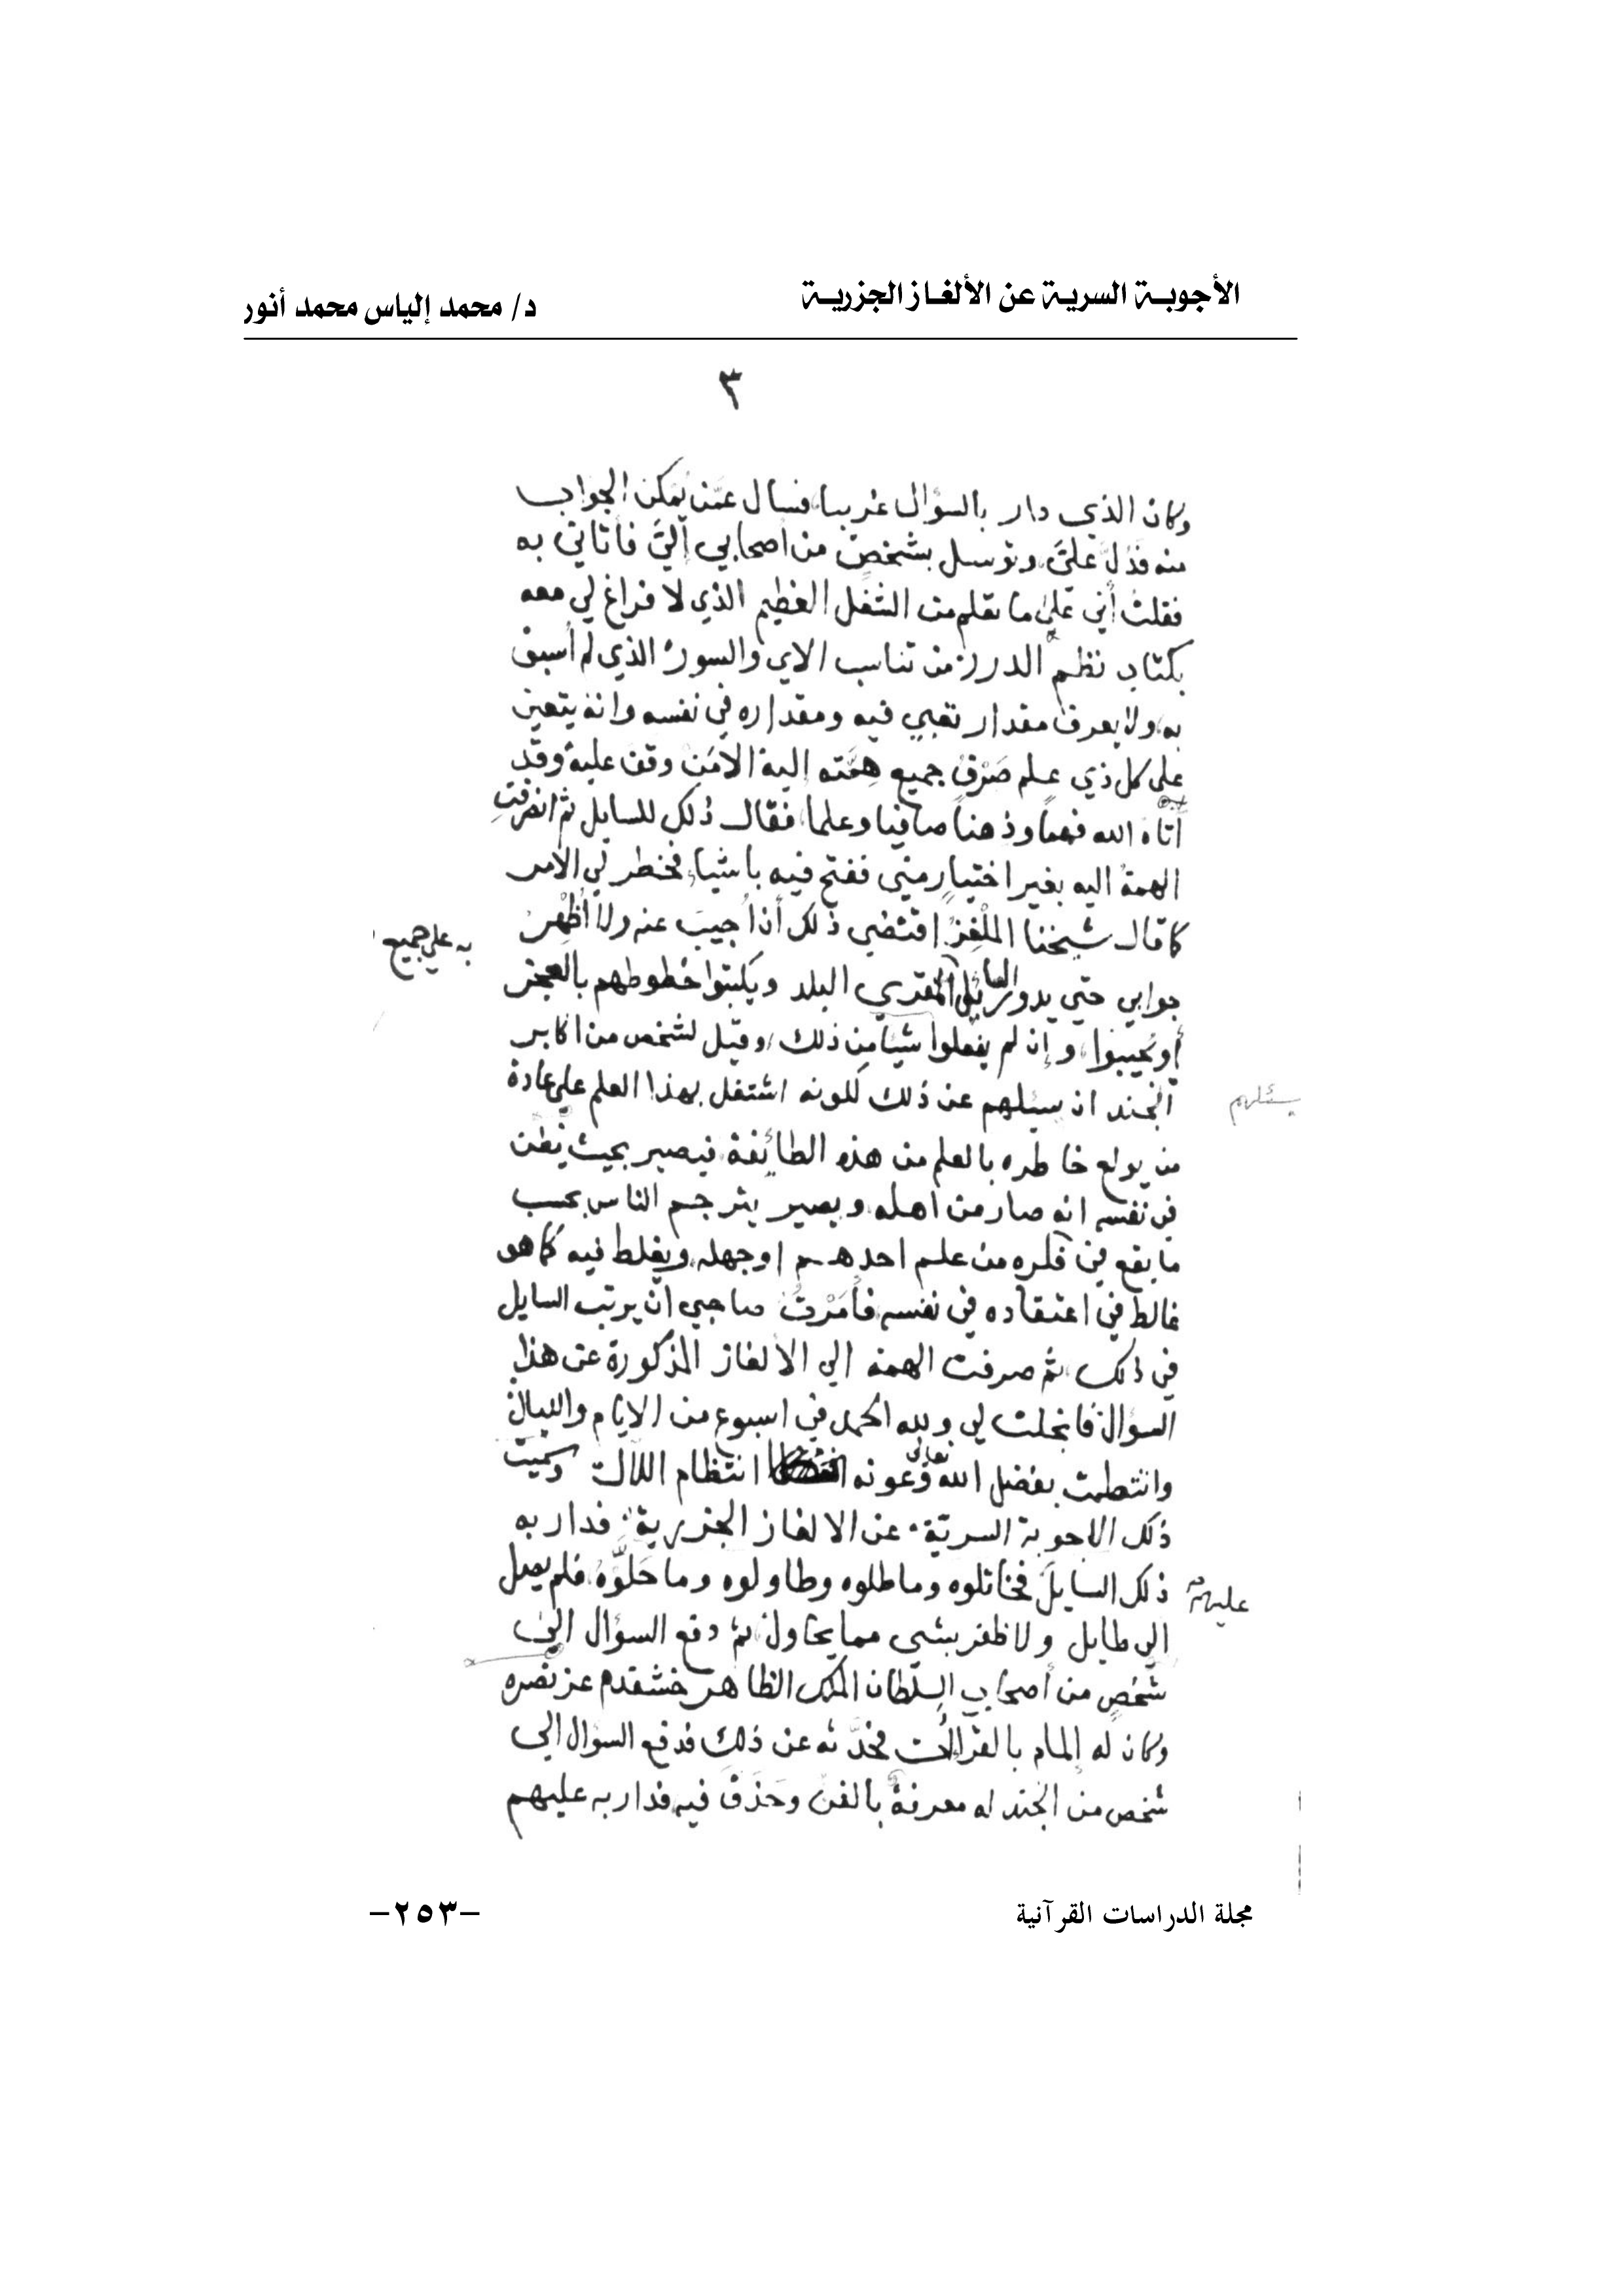 الأجوبة السرية عن الألغاز الجزرية
د/ محمد إلياس محمد أنور
٣
وكان الذي دار بالسؤال غريبا فسال عمن يمكن الجواب
منه فدُلّ عليَّ وتوسل بشخص من اصحابي إليَّ فأتاني به
فقلت أني علي ما تعلم من الشغل العظيم الذي لا فراغ لي معه
بكتاب نظم الدرر من تناسب الاي والسور الذي لم أسبق
به ولا يعرف مقدار تعبي فيه ومقداره في نفسه وانه يتعين
على كل ذي علم صَرْفُ جميع هِمّته اليه الا مَن وقف عليه وقد
آتاه الله فهماً وذهناً صافيا وعلما فقال ذلك للسايل ثم انصرفت
الهمة اليه بغير اختيارٍ مني ففتح فيه باشياء فخطر لي الامر
كما قال شيخنا الملْغِزُ اقتضي ذلك أن أجيبَ عنه ولا أُظْهِر
جوابي حتي يدور السائل المقري البلد ويكتبوا خطوطهم بالعجز
به علي جميع
أو يجيبوا وإن لم يفعلوا شيئا من ذلك وقيل لشخص من اكابر
الجند ان سيلهم عن ذلك لكونه اشتغل بهذا العلم علي عادة
يسئلهم
من يولع خاطره بالعلم من هذه الطائفة فيصير بحيث يظن
في نفسه انه صار من اهله ويصير يترجم الناس بحسب
ما يقع في فكره من علم احدهم او جهله ويغلط فيه كما هو
غالط في اعتقاده في نفسه فأمَرْتُ صاحبي انْ يرتب السايل
في ذلك ثم صرفت الهمة الي الالغاز المذكورة عن هذا
السؤال فانجلت لي ولله الحمد في اسبوع من الايام والليال
وانتظمت بفضل الله تعالى وعونه انتظام اللآل وسميت
ذلك الاجوبة السريّة عن الالغاز الجزرية فدار به
ذلك السايل فخاتلوه وماطلوه وطاولوه وما حَلّوه فلم يصل
عليهم
الي طايل ولا ظفر بشي مما يحاول ثم دفع السؤال الي
شخصٍ من أصحاب السلطان الملك الظاهر خشقدم عز نصره
وكان له إلمام بالقراآت فحدَّثه عن ذلك فدفع السؤال الي
شخص من الجند له معرفة بالفن وحَذَقَ فيه فدار به عليهم
مجلة الدراسات القرآنية
-٢٥٣-